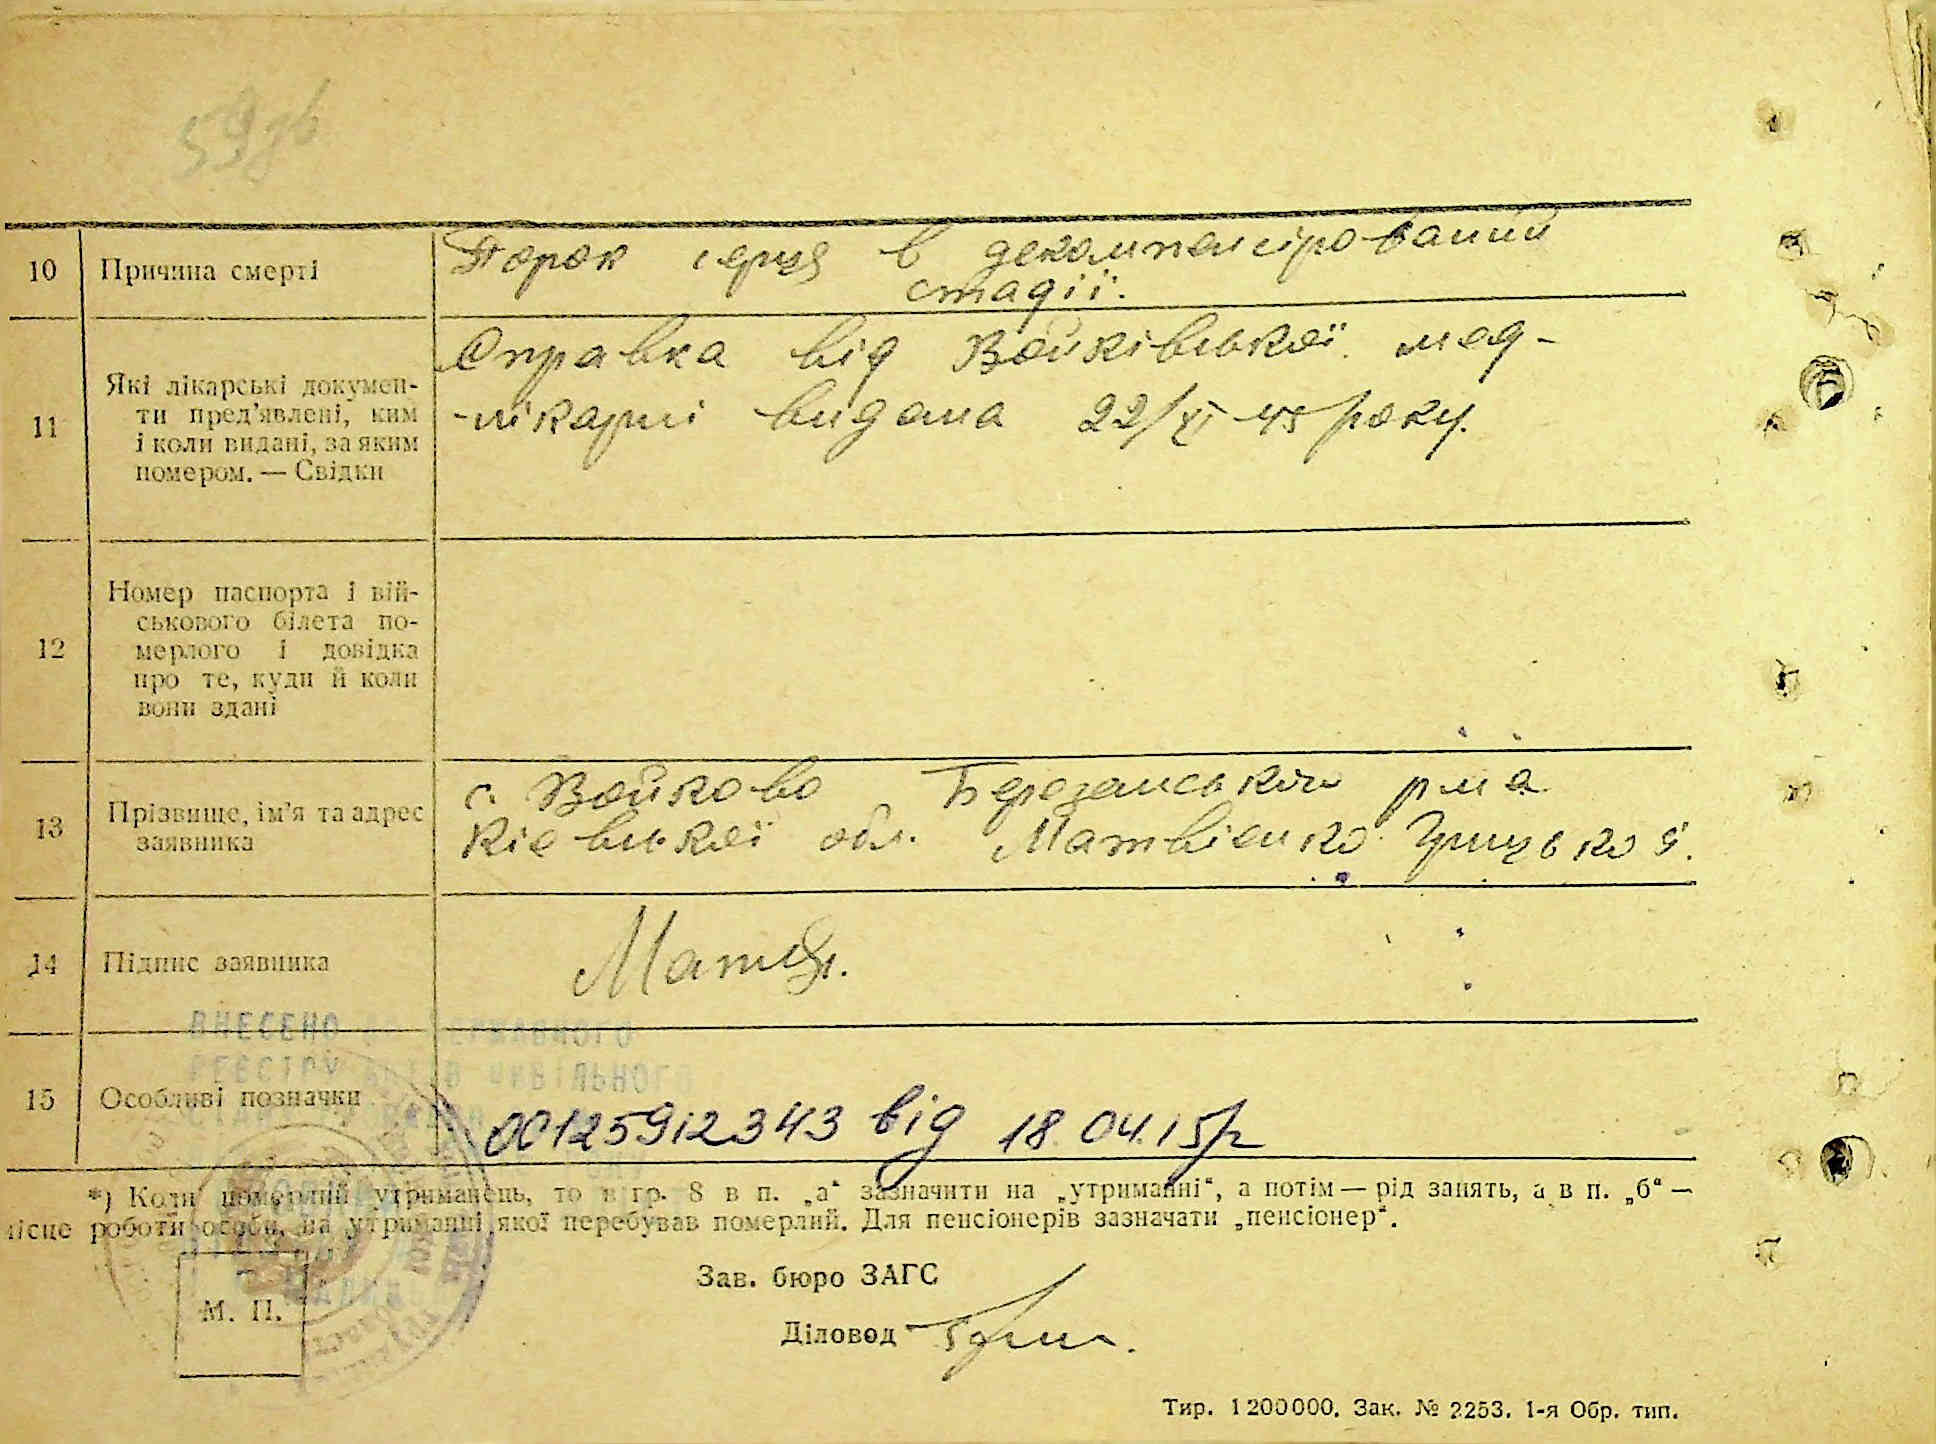 59 зв
10 Причина смерті Порок серця в декомпенсірованій
стадії.
11 Які лікарські докумен-
ти пред'явлені, ким
і коли видані, за яким
номером. — Свідки
Справка від Войківської мед-
-лікарні видана 22/XI 45 року.
12 Номер паспорта і вій-
ськового білета по-
мерлого і довідка
про те, куди й коли
вони здані
13 Прізвище, ім'я та адрес
заявника
с. Войково Березанського р-на
Кіевської обл. Матвієнко Грицько
14 Підпис заявника
ВНЕСЕНО ДО ДЕРЖАВНОГО
РЕЄСТРУ АКТІВ ЦИВІЛЬНОГО
15 Особливі позначки 00125912343 від 18.04.15р
*) Коли померлий утриманець, то в гр. 8 в п. „а“ зазначити на „утриманні“, а потім — рід занять, а в п. „б“ —
місце роботи особи, на утриманні якої перебував померлий. Для пенсіонерів зазначати „пенсіонер“.
Зав. бюро ЗАГС
М. П.
Діловод
Тир. 1200000. Зак. № 2253. 1-я Обр. тип.